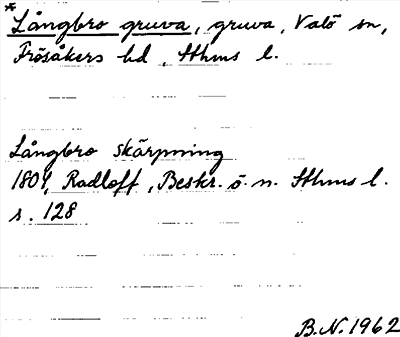 * Långbro gruva, gruva, Valö sn,
Frösåkers hd, Sthms l.
Långbro skärpning
1804, Radloff, Beskr. ö. n. Sthms l.
s. 128
B.N. 1962